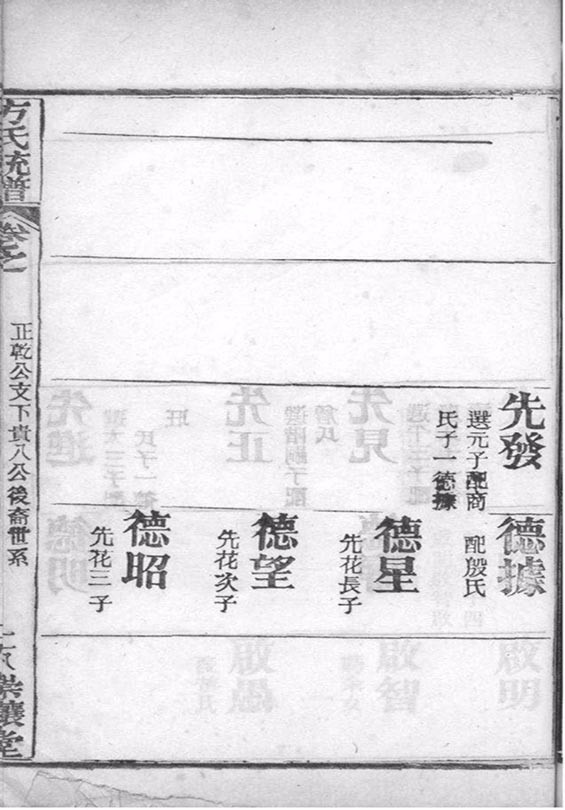 先發
選元子配商
氏子一德㩀
德㩀
配殷氏
德星
先花長子
德望
先花次子
德昭
先花三子
方氏統譜
卷之
正乾公支下貴八公後裔世系
堂